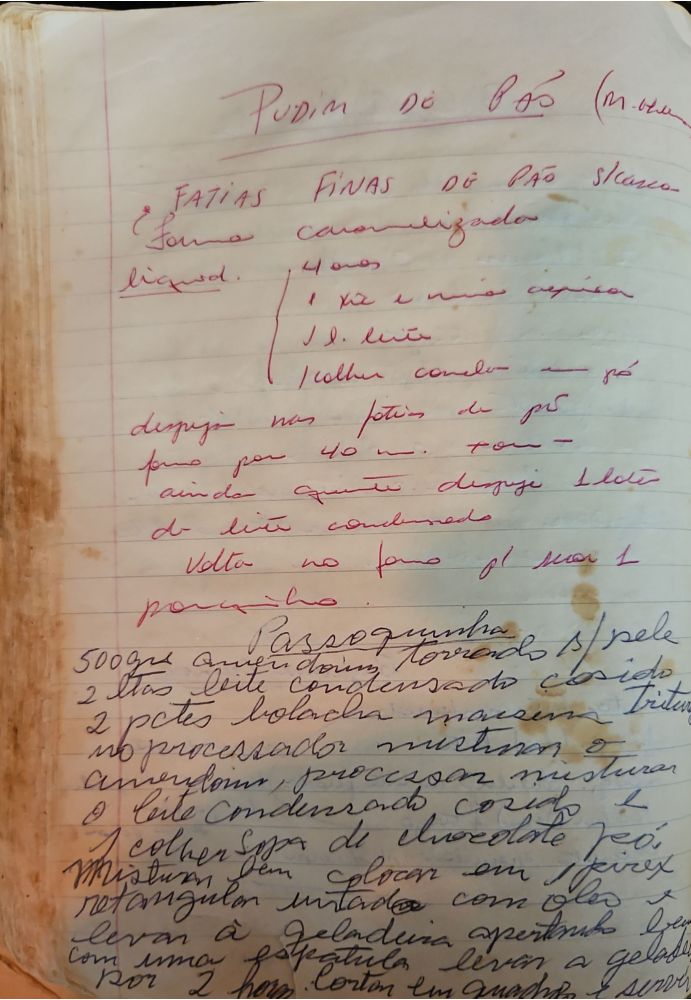 PUDIM DE PÃO (M.
FATIAS FINAS DE PÃO S/casca
Forma caramelizada
liquid. 4 ovos
1 xíc e meia açúcar
1 l. leite
1 colher canela em pó
despeja nas fatias de pão
forno por 40 m. + ou -
ainda quente despeje 1 lata
de leite condensado
Volta no forno p/ secar 1
pouquinho.
Passoquinha
500grs amendoim torrado s/ pele
2 ltas leite condensado cosido
2 pctes bolacha maisena
no processador misturar o
amendoim, processar misturar
o leite condensado cosido e
1 colher sopa de chocolate pó,
Misturar bem colocar em 1 pirex
retangular untado com óleo e
levar à geladeira apertando
com uma espatula levar a
por 2 horas. Cortar em quadros e